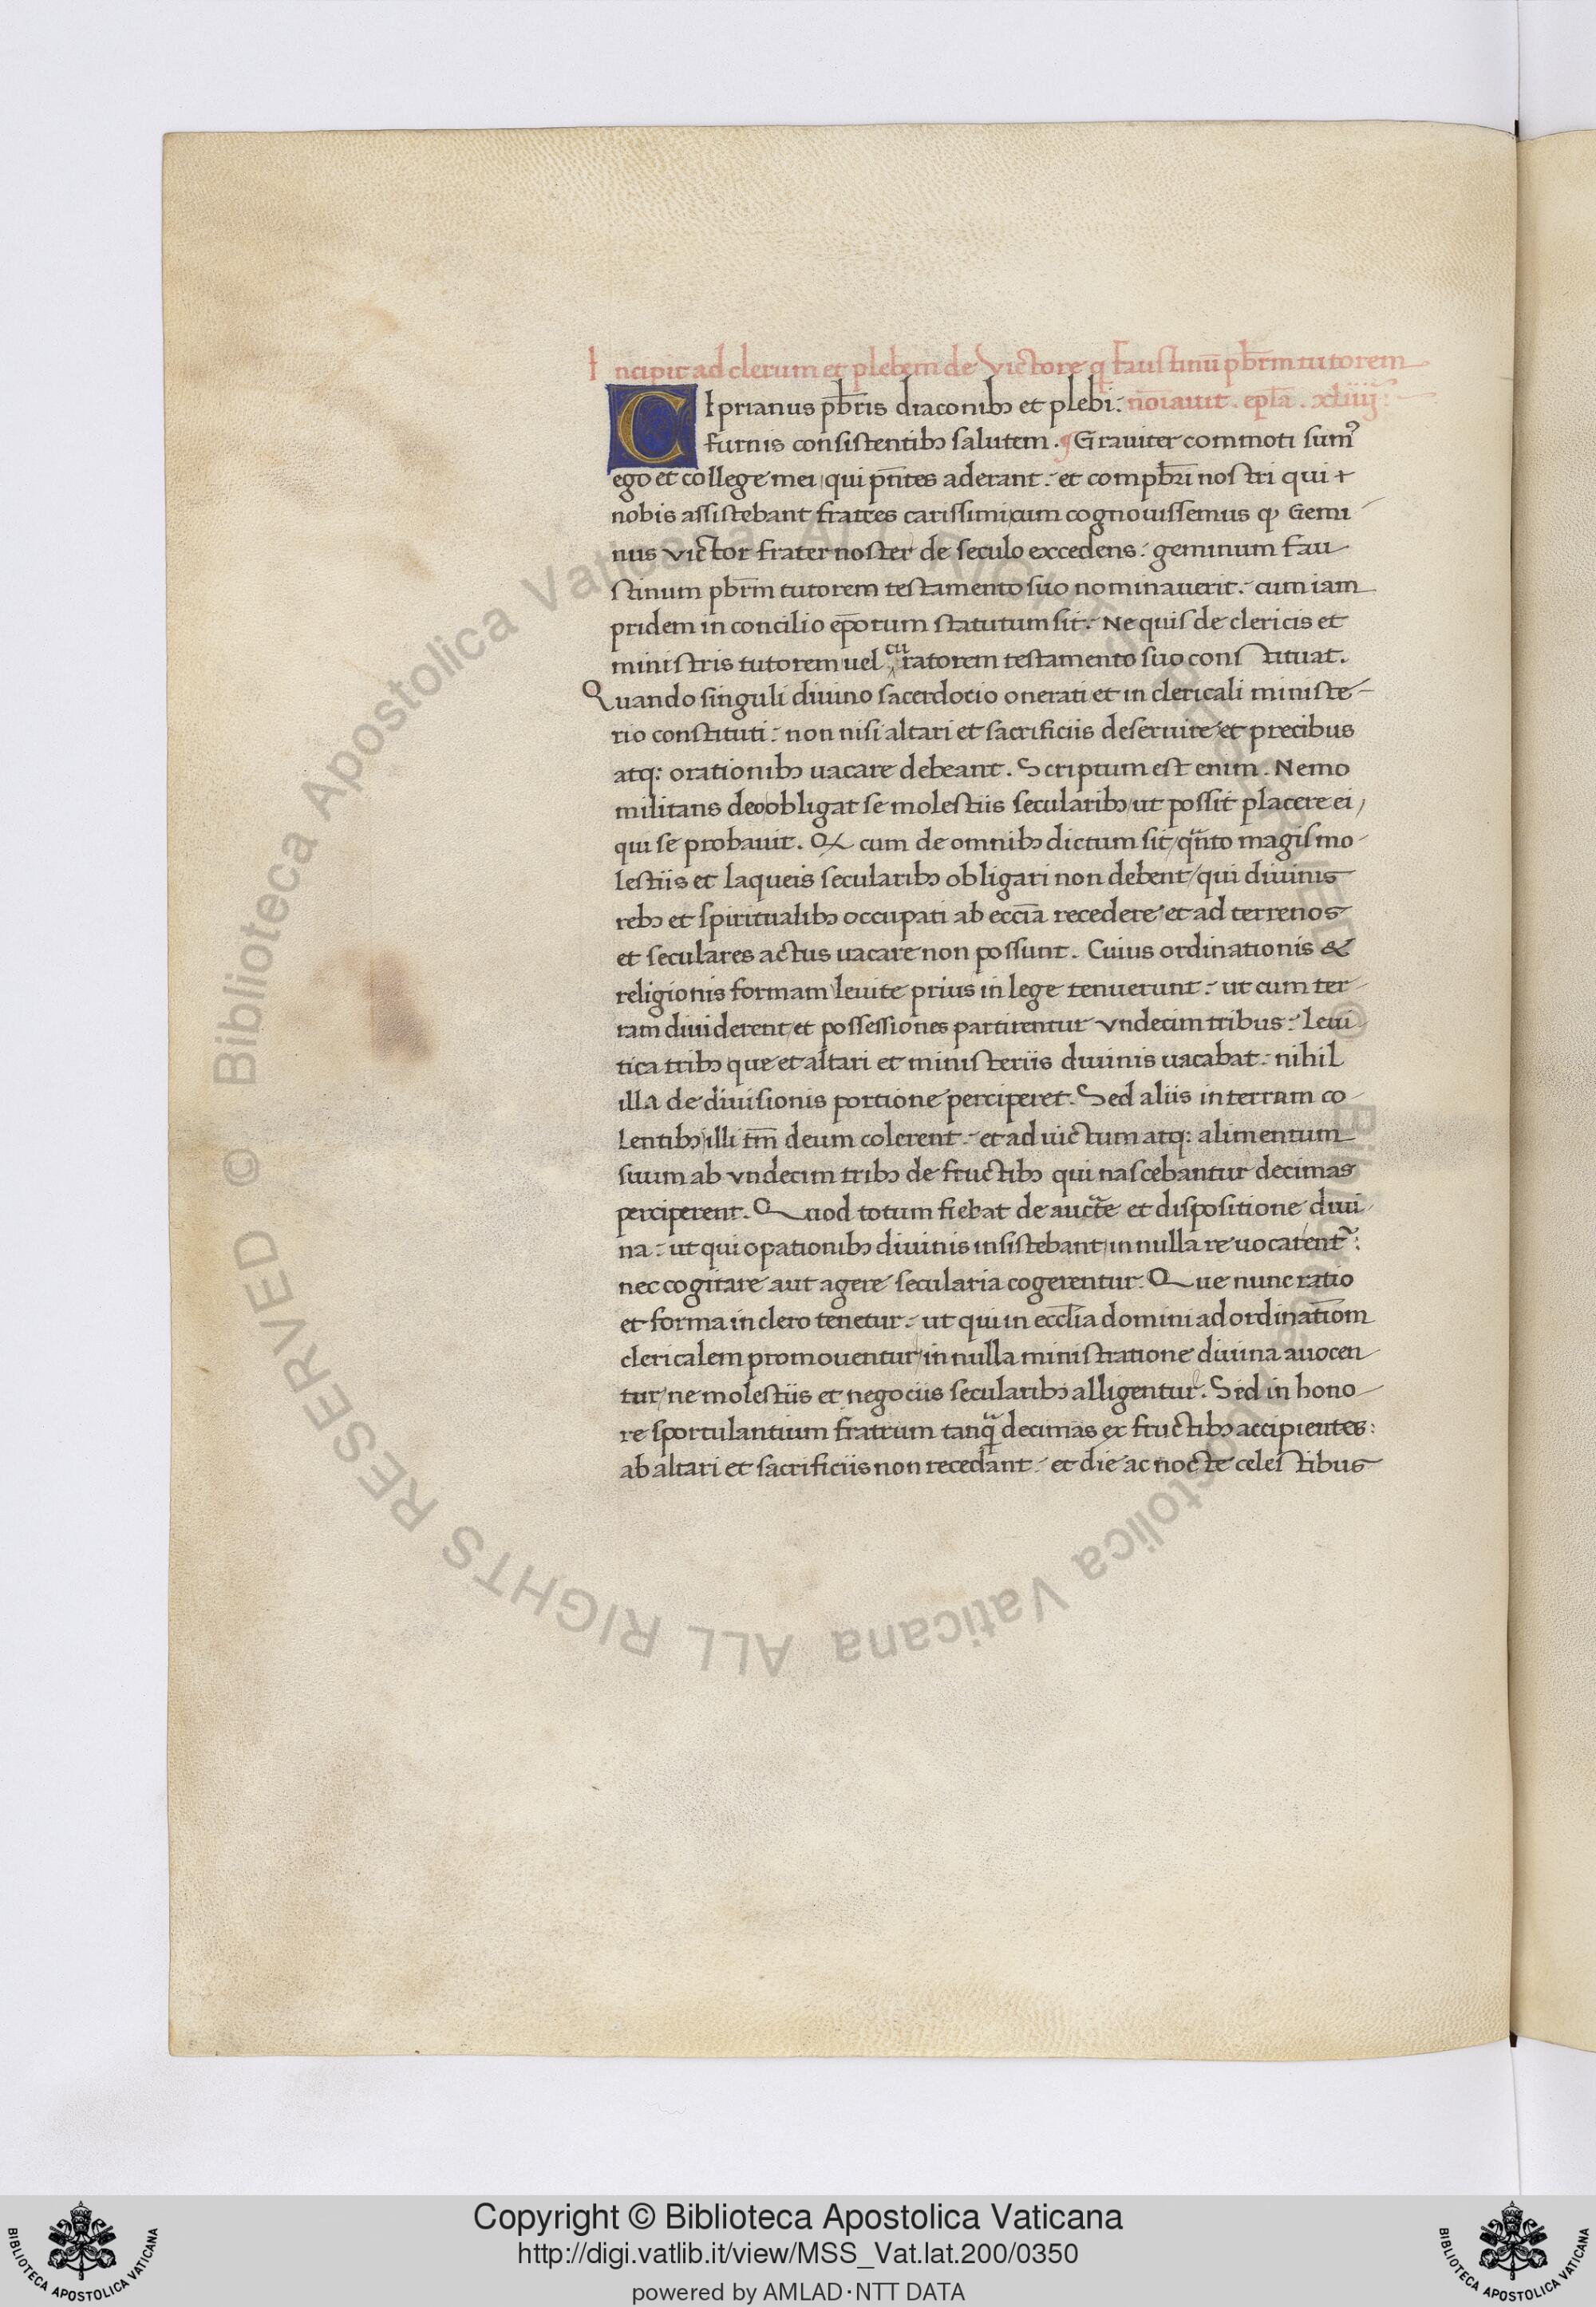 Incipit ad clerum et plebem de Victore q faustinū pb̄rm tutorem
CIprianus pb̄ris diaconibꝫ et plebi: noīauit . epl̄a . xliiij:
furnis consistentibꝫ salutem . ¶ Grauiter commoti sumꝰ
ego et college mei, qui pn̄tes aderant: et compb̄ri nostri qui +
nobis assistebant fratres carissimi, cum cognouissemus ꝙ Gemi-
nus victor frater noster de seculo excedens: geminum fau-
stinum pb̄rm tutorem testamento suo nominauerit: cum iam
pridem in concilio ep̄orum statutum sit: Ne quis de clericis et
ministris tutorem uel curatorem testamento suo constituat.
Quando singuli diuino sacerdotio onerati et in clericali ministe-
rio constituti: non nisi altari et sacrificiis deseruire et precibus
atq: orationibꝫ uacare debeant. Scriptum est enim. Nemo
militans deo obligat se molestiis secularibꝫ, ut possit placere ei,
qui se probauit. Q cum de omnibꝫ dictum sit, qᵃnto magis mo-
lestiis et laqueis secularibꝫ obligari non debent, qui diuinis
rebꝫ et spiritualibꝫ occupati ab ecc̄ia recedere et ad terrenos
et seculares actus uacare non possunt. Cuius ordinationis &
religionis formam leuite prius in lege tenuerunt: ut cum ter-
ram diuiderent, et possessiones partirentur vndecim tribus: leui-
tica tribꝫ que et altari et ministeriis diuinis uacabat: nihil
illa de diuisionis portione perciperet. Sed aliis interram co-
lentibꝫ, illi tm̄ deum colerent: et ad uictum atq: alimentum
suum ab vndecim tribꝫ de fructibꝫ qui nascebantur decimas
perciperent. Quod totum fiebat de auct̄e et dispositione diui-
na: ut qui opationibꝫ diuinis insistebant, in nulla re uocarent̃:
nec cogitare aut agere secularia cogerentur. Que nunc ratio
et forma in clero tenetur: ut qui in eccl̄ia domini ad ordinatiōm
clericalem promouentur, in nulla ministratione diuina auocen-
tur, ne molestiis et negociis secularibꝫ alligentur. Sed in hono-
re sportulantium fratrum tanqᵃ decimas ex fructibꝫ accipientes:
ab altari et sacrificiis non recedant: et die ac nocte celestibus
Copyright © Biblioteca Apostolica Vaticana
http://digi.vatlib.it/view/MSS_Vat.lat.200/0350
powered by AMLAD·NTT DATA
© Biblioteca Apostolica Vaticana ALL RIGHTS RESERVED © Biblioteca Apostolica Vaticana ALL RIGHTS RESERVED
BIBLIOTECA APOSTOLICA VATICANA
BIBLIOTECA APOSTOLICA VATICANA